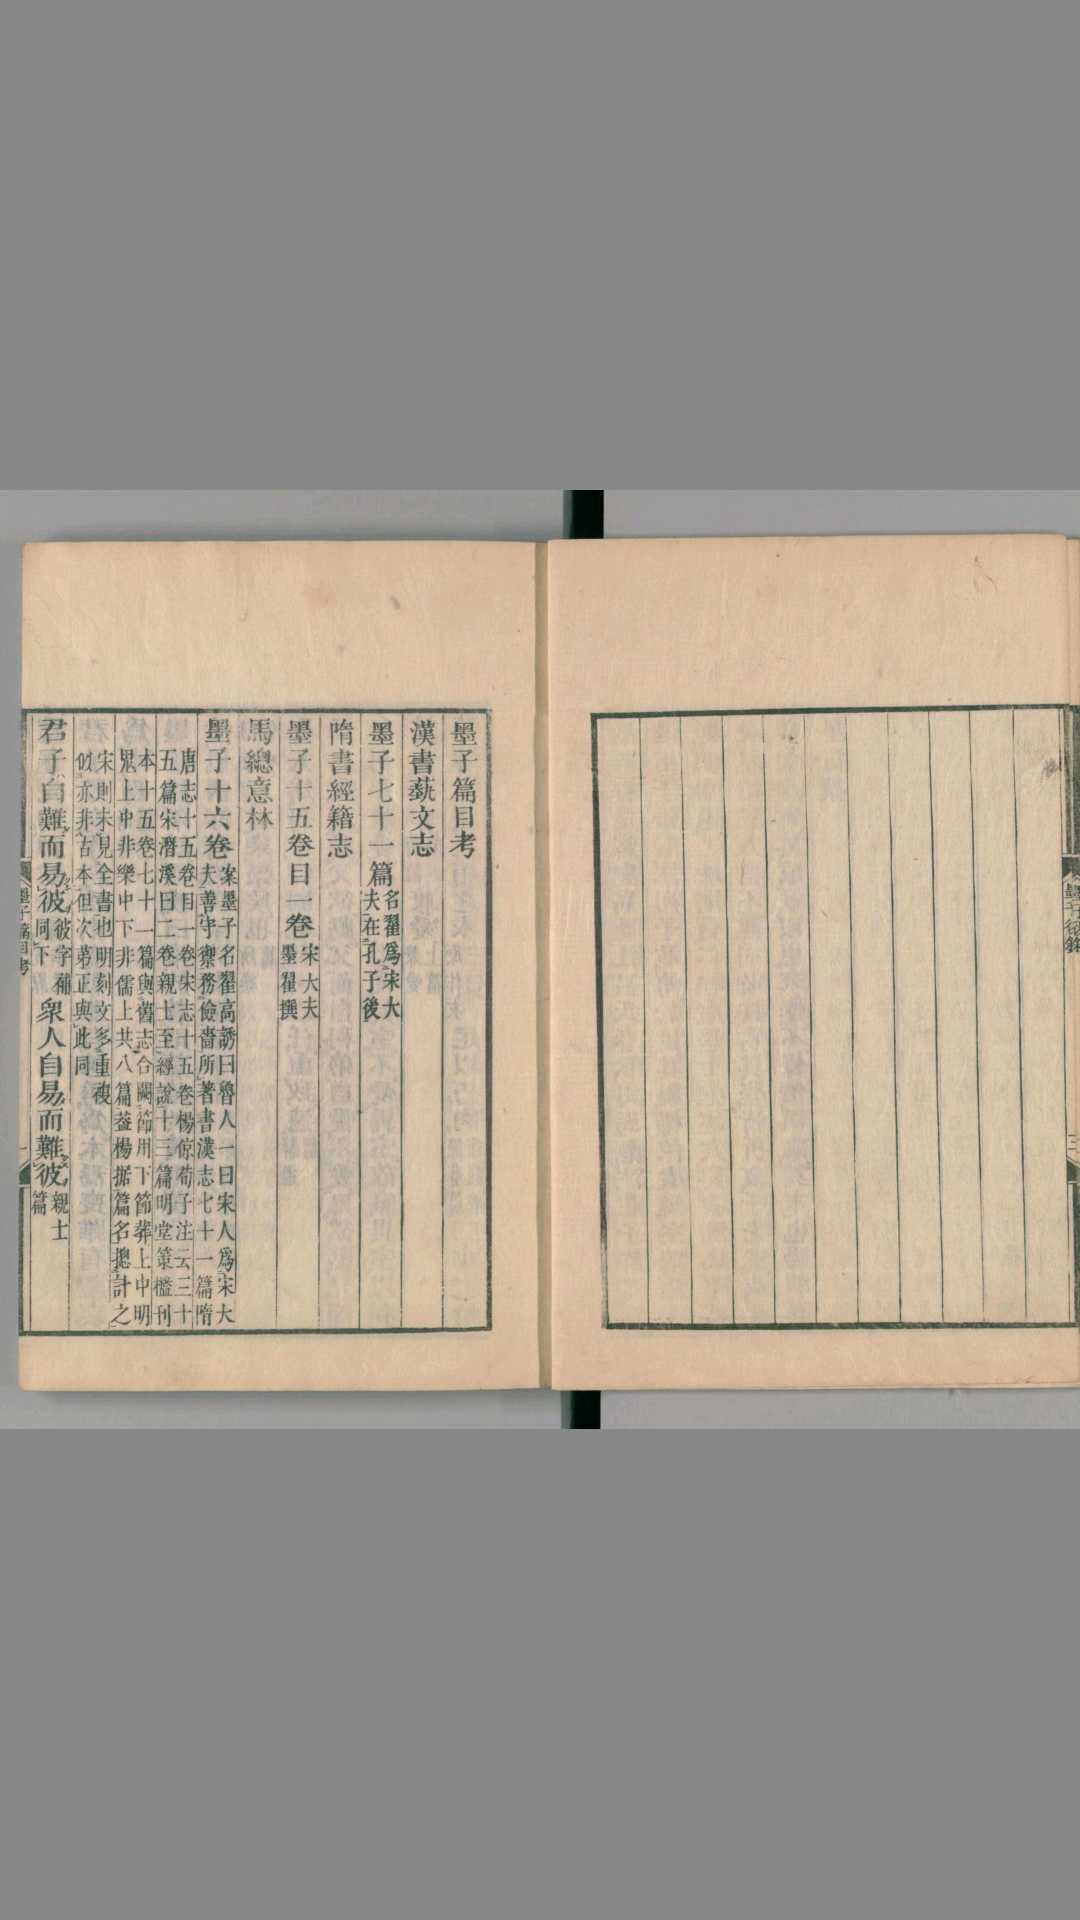 墨子後錄
三
墨子篇目考
漢書蓺文志
墨子七十一篇名翟爲宋大夫在孔子後
隋書經籍志
墨子十五卷目一卷宋大夫墨翟撰
馬總意林
墨子十六卷案墨子名翟高誘曰魯人一曰宋人爲宋大夫善守禦務儉嗇所著書漢志七十一篇隋
唐志十五卷目一卷宋志十五卷楊倞荀子注云三十五篇宋潛溪曰二卷親士至經說十三篇明堂策檻刊
本十五卷七十一篇與舊志合闕節用下節葬上中明鬼上中非樂中下非儒上共八篇葢楊据篇名摠計之
宋則未見全書也明刻文多重複㕥亦非古本但次第正與此同
君子自難而易彼彼字補同下衆人自易而難彼親士篇
墨子篇目考
一